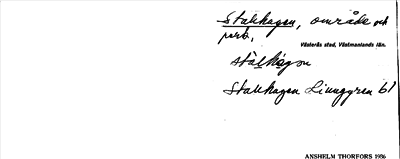 Stallhagen, område och
park,
Västerås stad, Västmanlands län.
stálhágọn
Stallhagen Ljunggren 61
ANSHELM THORFORS 1936